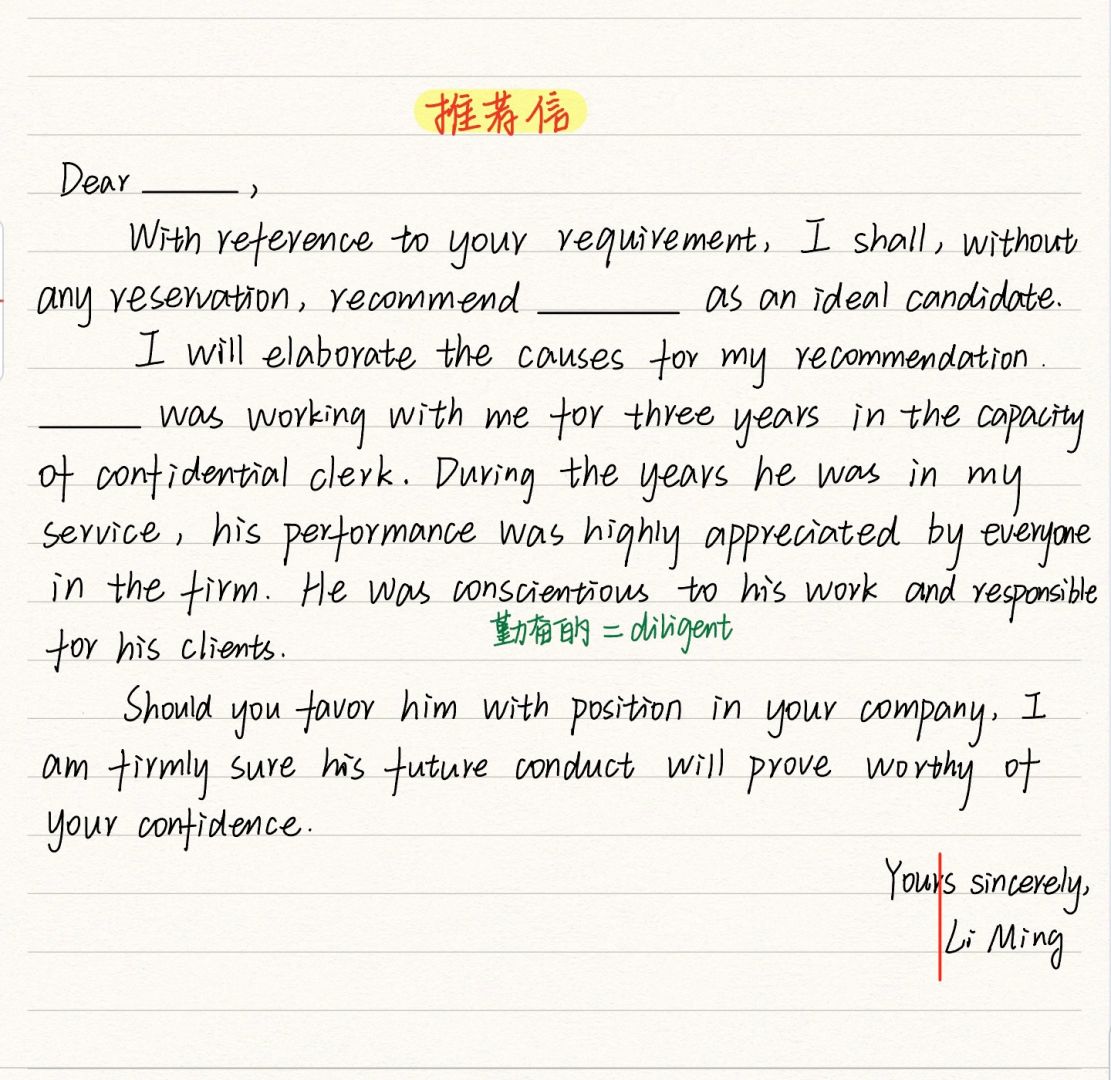 推荐信
Dear ______,
With reference to your requirement, I shall, without
any reservation, recommend ______ as an ideal candidate.
I will elaborate the causes for my recommendation.
______ was working with me for three years in the capacity
of confidential clerk. During the years he was in my
service, his performance was highly appreciated by everyone
in the firm. He was conscientious to his work and responsible
勤奋的 = diligent
for his clients.
Should you favor him with position in your company, I
am firmly sure his future conduct will prove worthy of
your confidence.
Yours sincerely,
Li Ming